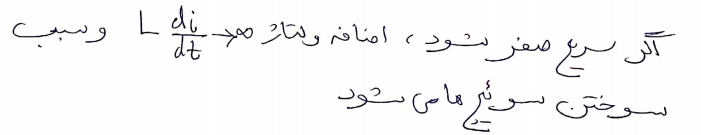 اگر سریع صفر شود، اضافه ولتاژ L di/dt → ∞ و سبب
سوختن سوئیچ ها می شود